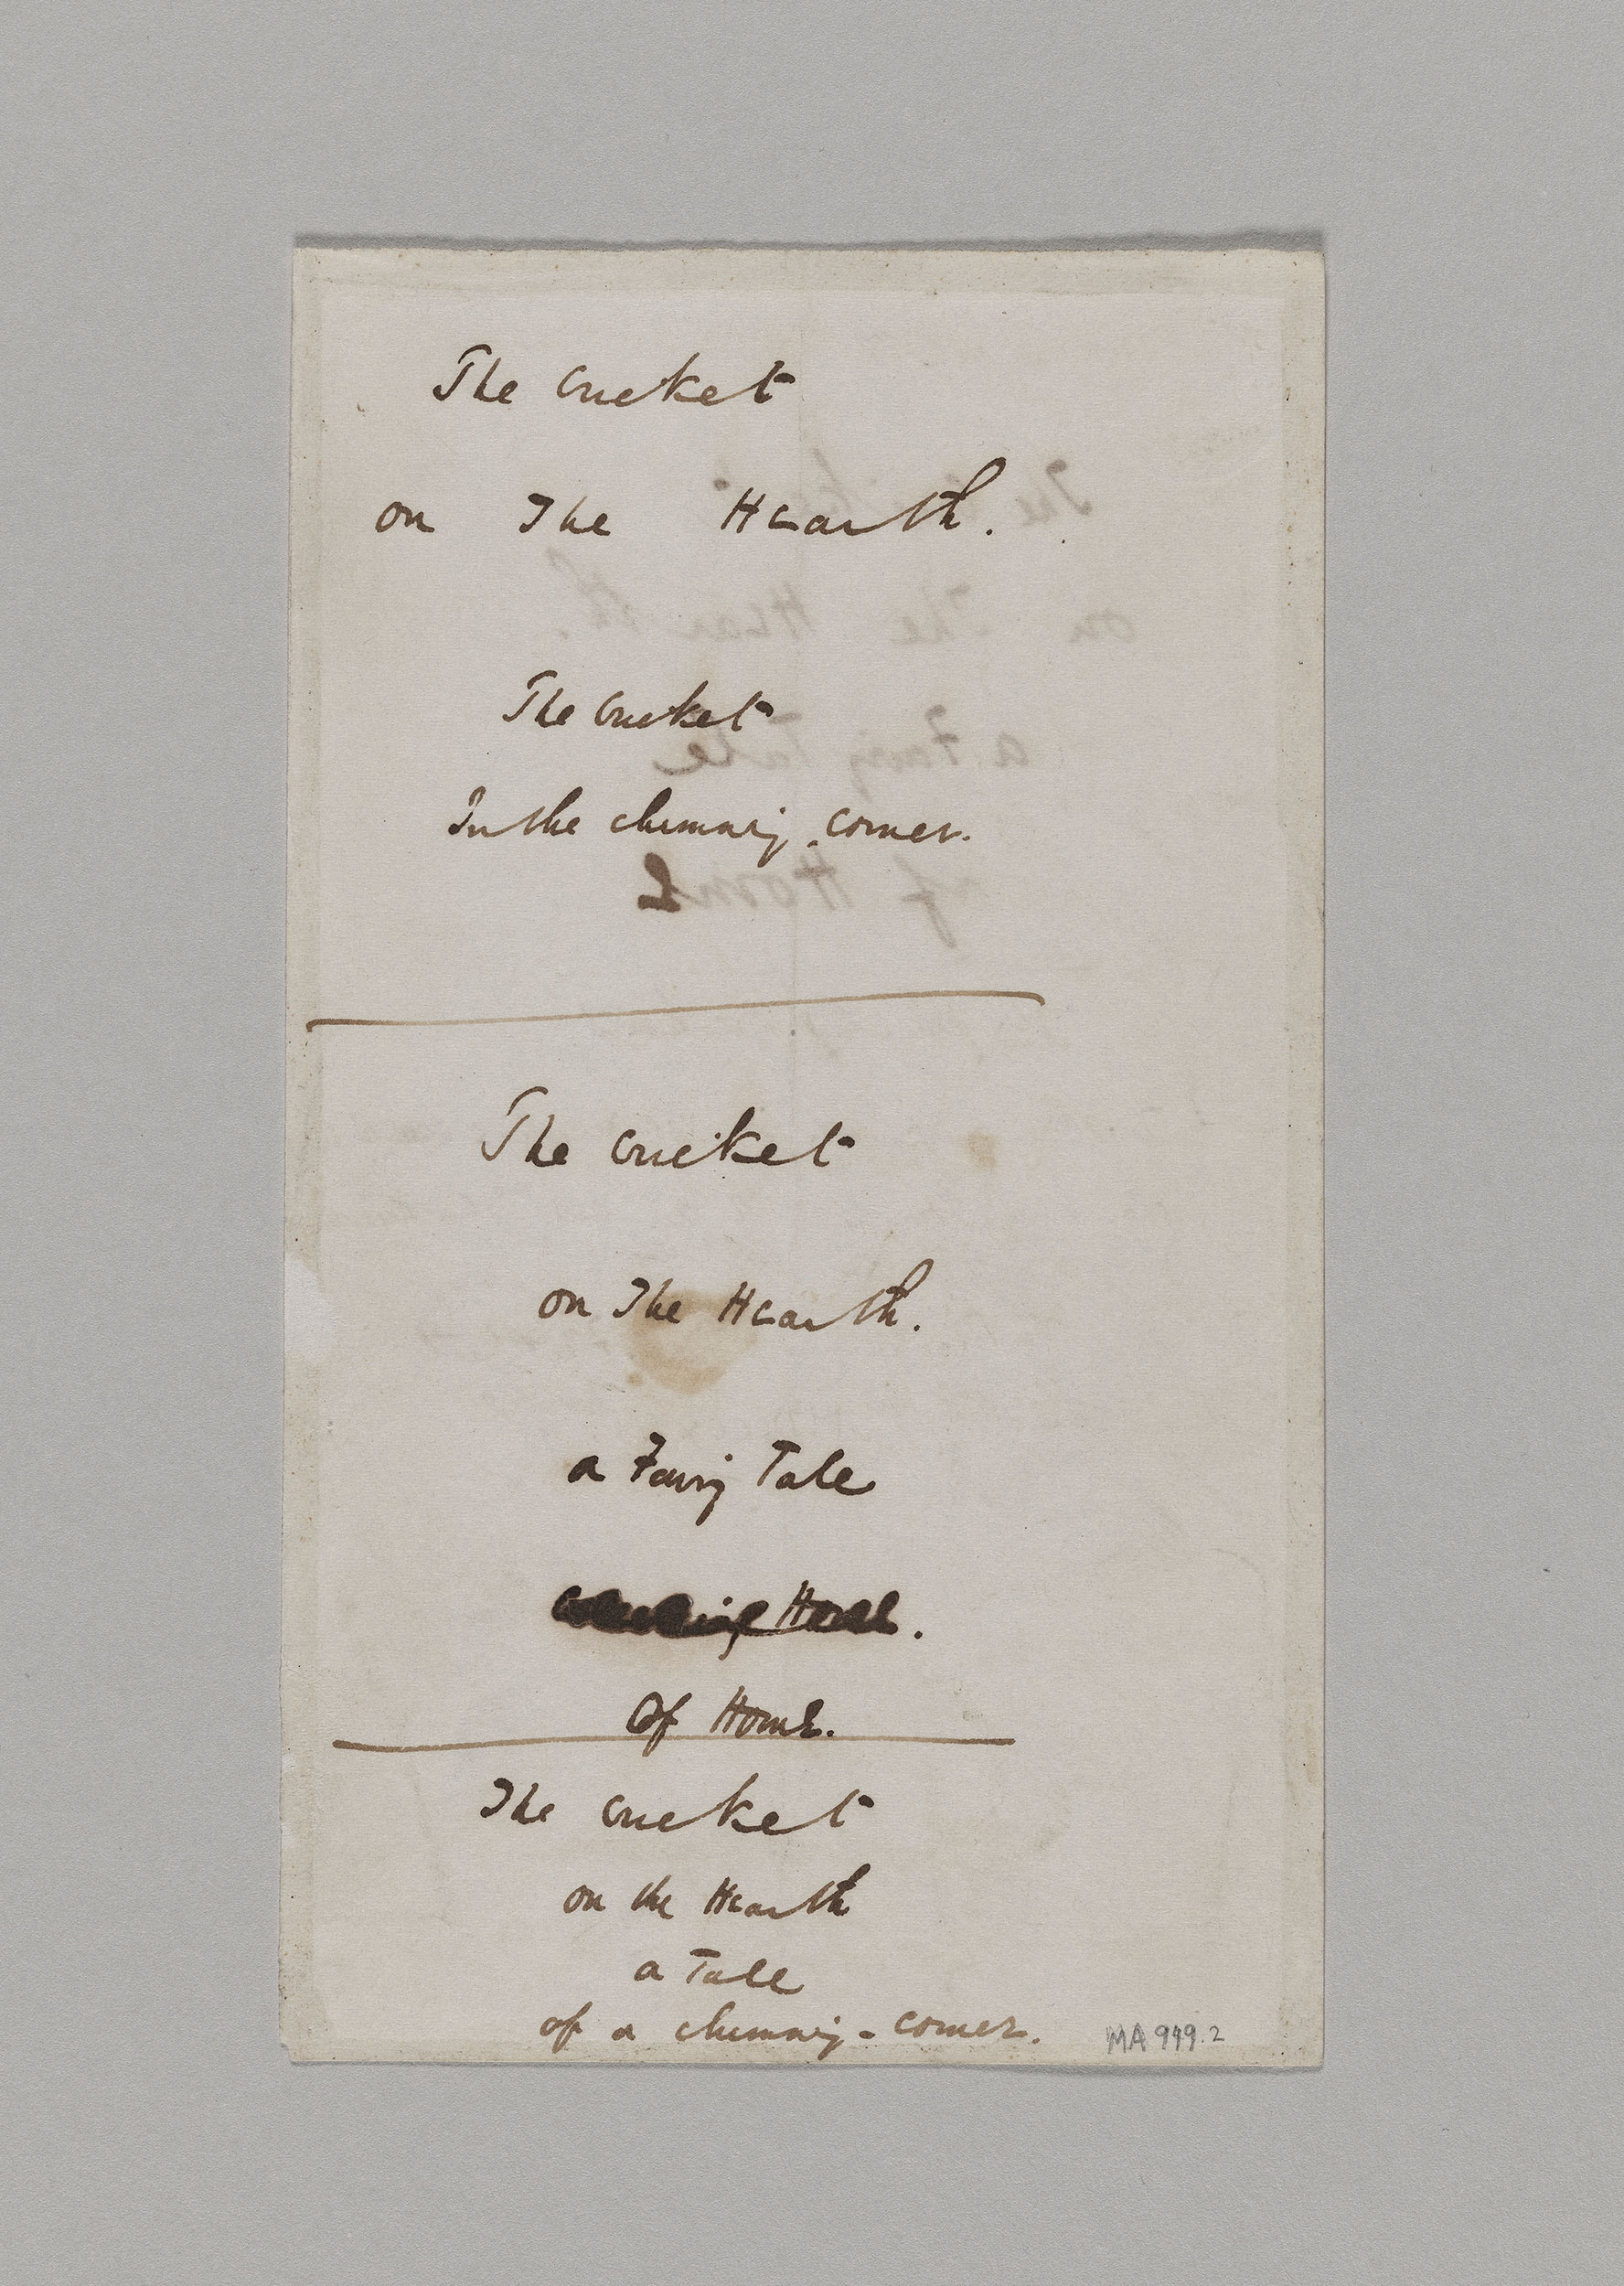 The Cricket
on The Hearth.
The Cricket
In the chimney corner.
The Cricket
on The Hearth.
a Fairy Tale
Of Home.
The Cricket
on the Hearth
a Tale
of a chimney-corner.
MA 949.2